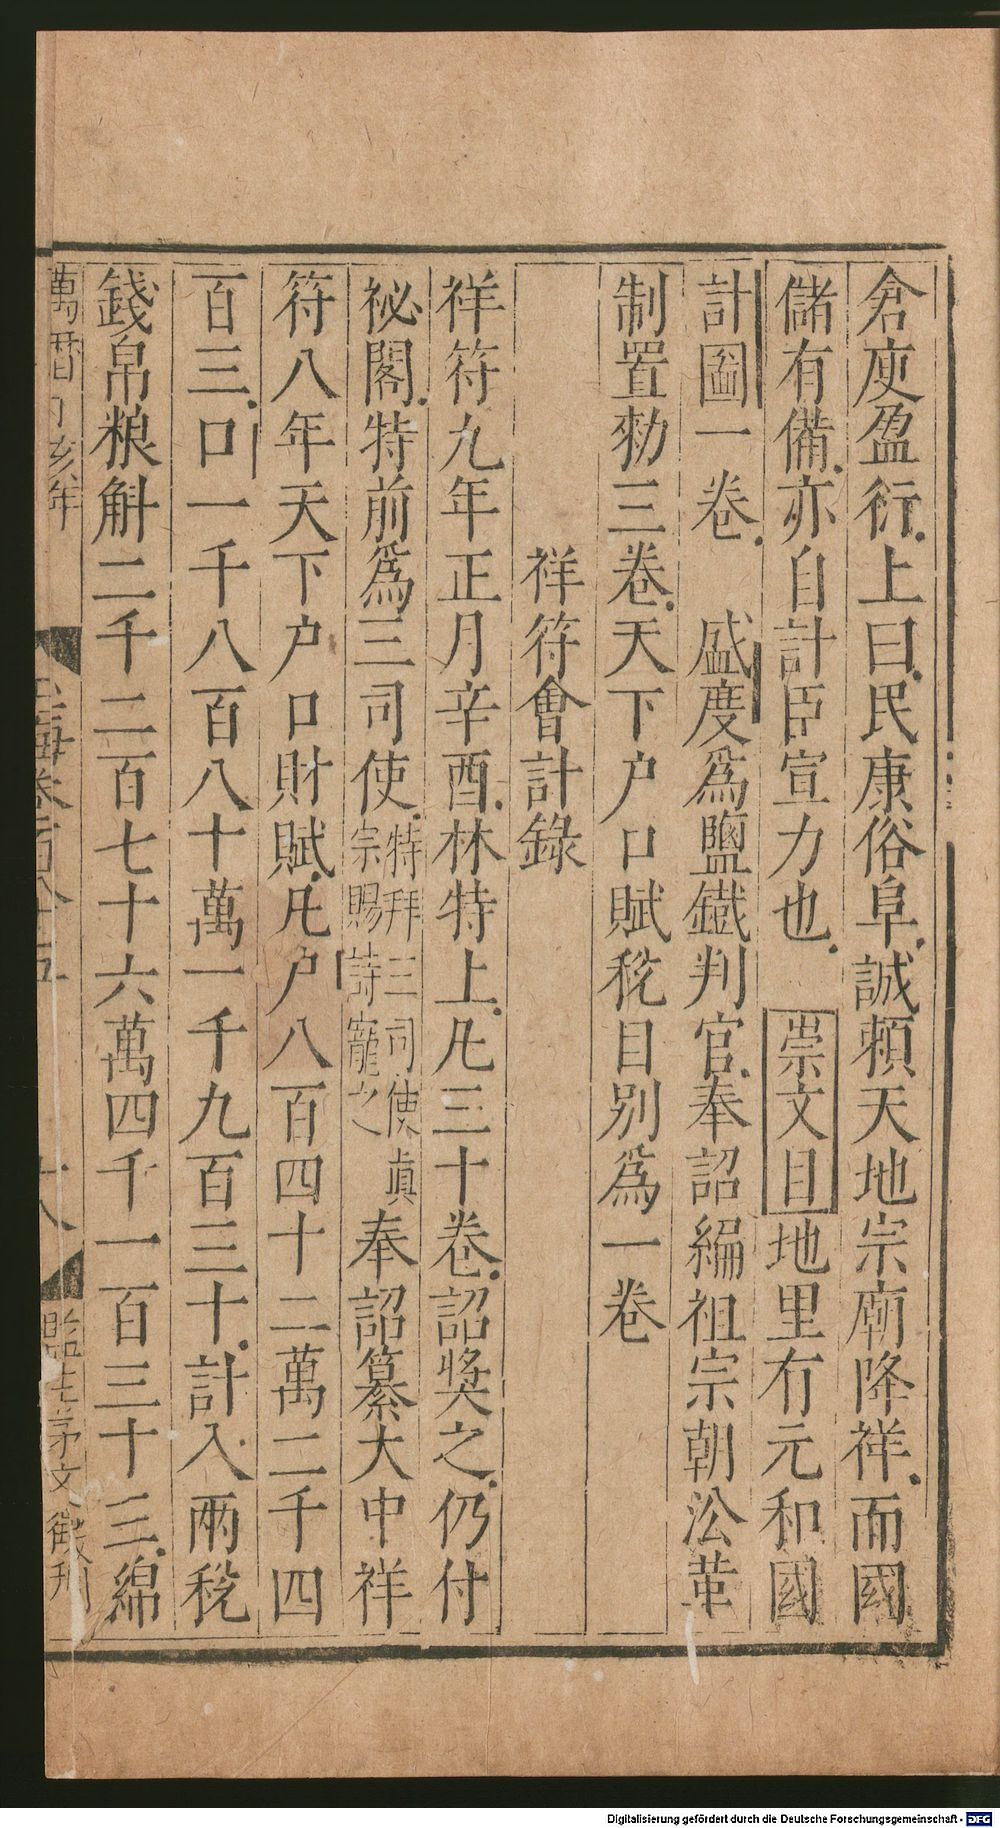 倉庾盈衍上曰民康俗阜誠賴天地宗廟降祥而國
儲有備亦自計臣宣力也 崇文目地里有元和國
計圖一卷 盛度為鹽鐵判官奉詔編祖宗朝沿革
制置勑三卷天下户口賦稅目别為一卷
祥符會計錄
祥符九年正月辛酉林特上凡三十卷詔奬之仍付
祕閣特前為三司使特拜三司使眞宗賜詩寵之奉詔纂大中祥
符八年天下户口財賦凡户八百四十二萬二千四
百三口一千八百八十萬一千九百三十計入兩稅
錢帛粮斛二千二百七十六萬四千一百三十三綿
萬曆 亥年
玉海卷一百八十五
十八
監生茅文徵刊
Digitalisierung gefördert durch die Deutsche Forschungsgemeinschaft - DFG